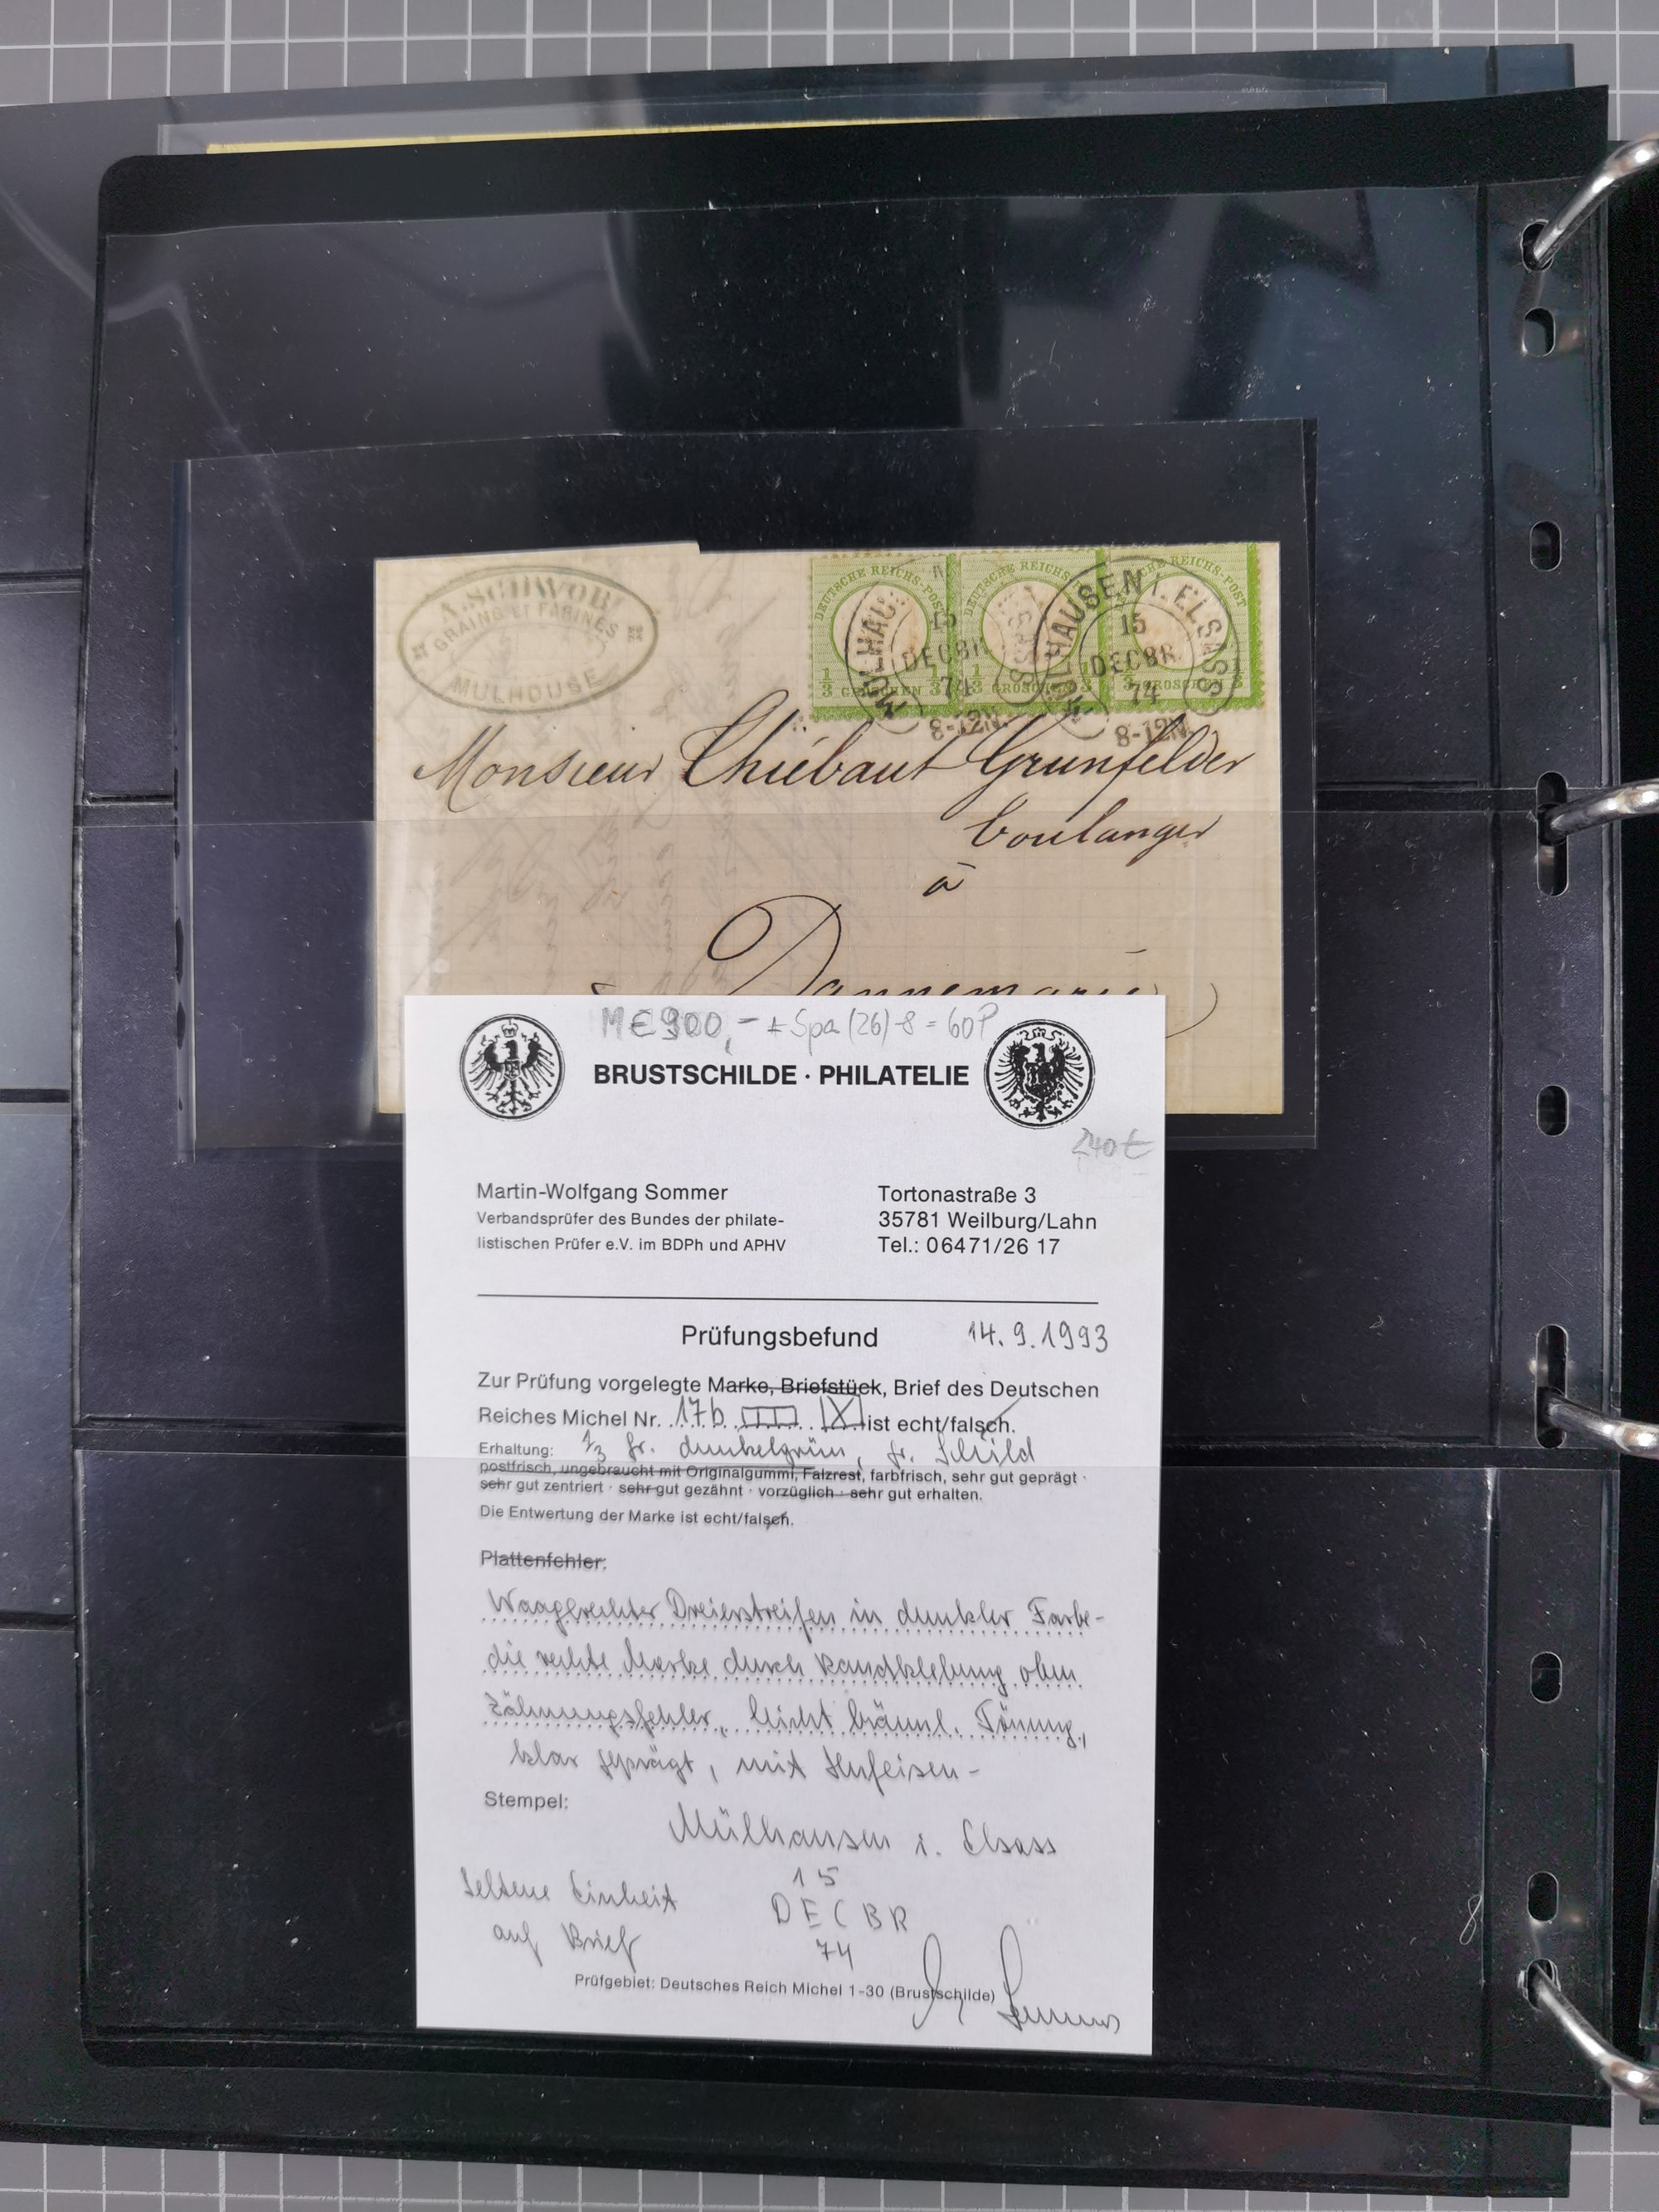 A. SCHWOB
GRAINS ET FARINES
MULHOUSE
DEUTSCHE REICHS-POST
DEUTSCHE REICHS-POST
DEUTSCHE REICHS-POST
1/3 GROSCHEN 1/3
1/3 GROSCHEN 1/3
1/3 GROSCHEN 1/3
MÜLHAUSEN
15
DECBR
74
8-12N.
MÜLHAUSEN I. ELSASS
15
DECBR
74
8-12N.
Monsieur Thiébaut Grunfelder
boulanger
à
Dannemarie
M€ 900,- + Spa (26) -8 = 60P
BRUSTSCHILDE · PHILATELIE
240€
Martin-Wolfgang Sommer
Verbandsprüfer des Bundes der philate-
listischen Prüfer e.V. im BDPh und APHV
Tortonastraße 3
35781 Weilburg/Lahn
Tel.: 06471/26 17
Prüfungsbefund 14.9.1993
Zur Prüfung vorgelegte Marke, Briefstück, Brief des Deutschen
Reiches Michel Nr. 17b ist echt/falsch.
Erhaltung: 1/3 Gr. dunkelgrün, gr. Schild
postfrisch, ungebraucht mit Originalgummi, Falzrest, farbfrisch, sehr gut geprägt ·
sehr gut zentriert · sehr gut gezähnt · vorzüglich · sehr gut erhalten.
Die Entwertung der Marke ist echt/falsch.
Plattenfehler:
Waagerechter Dreierstreifen in dunkler Farbe-
die rechte Marke durch Randklebung oben
Zähnungsfehler, leicht bräunl. Tönung,
klar geprägt, mit Hufeisen-
Stempel:
Mülhausen i. Elsass
15
DECBR
74
Seltene Einheit
auf Brief
Prüfgebiet: Deutsches Reich Michel 1-30 (Brustschilde)
Sommer
8